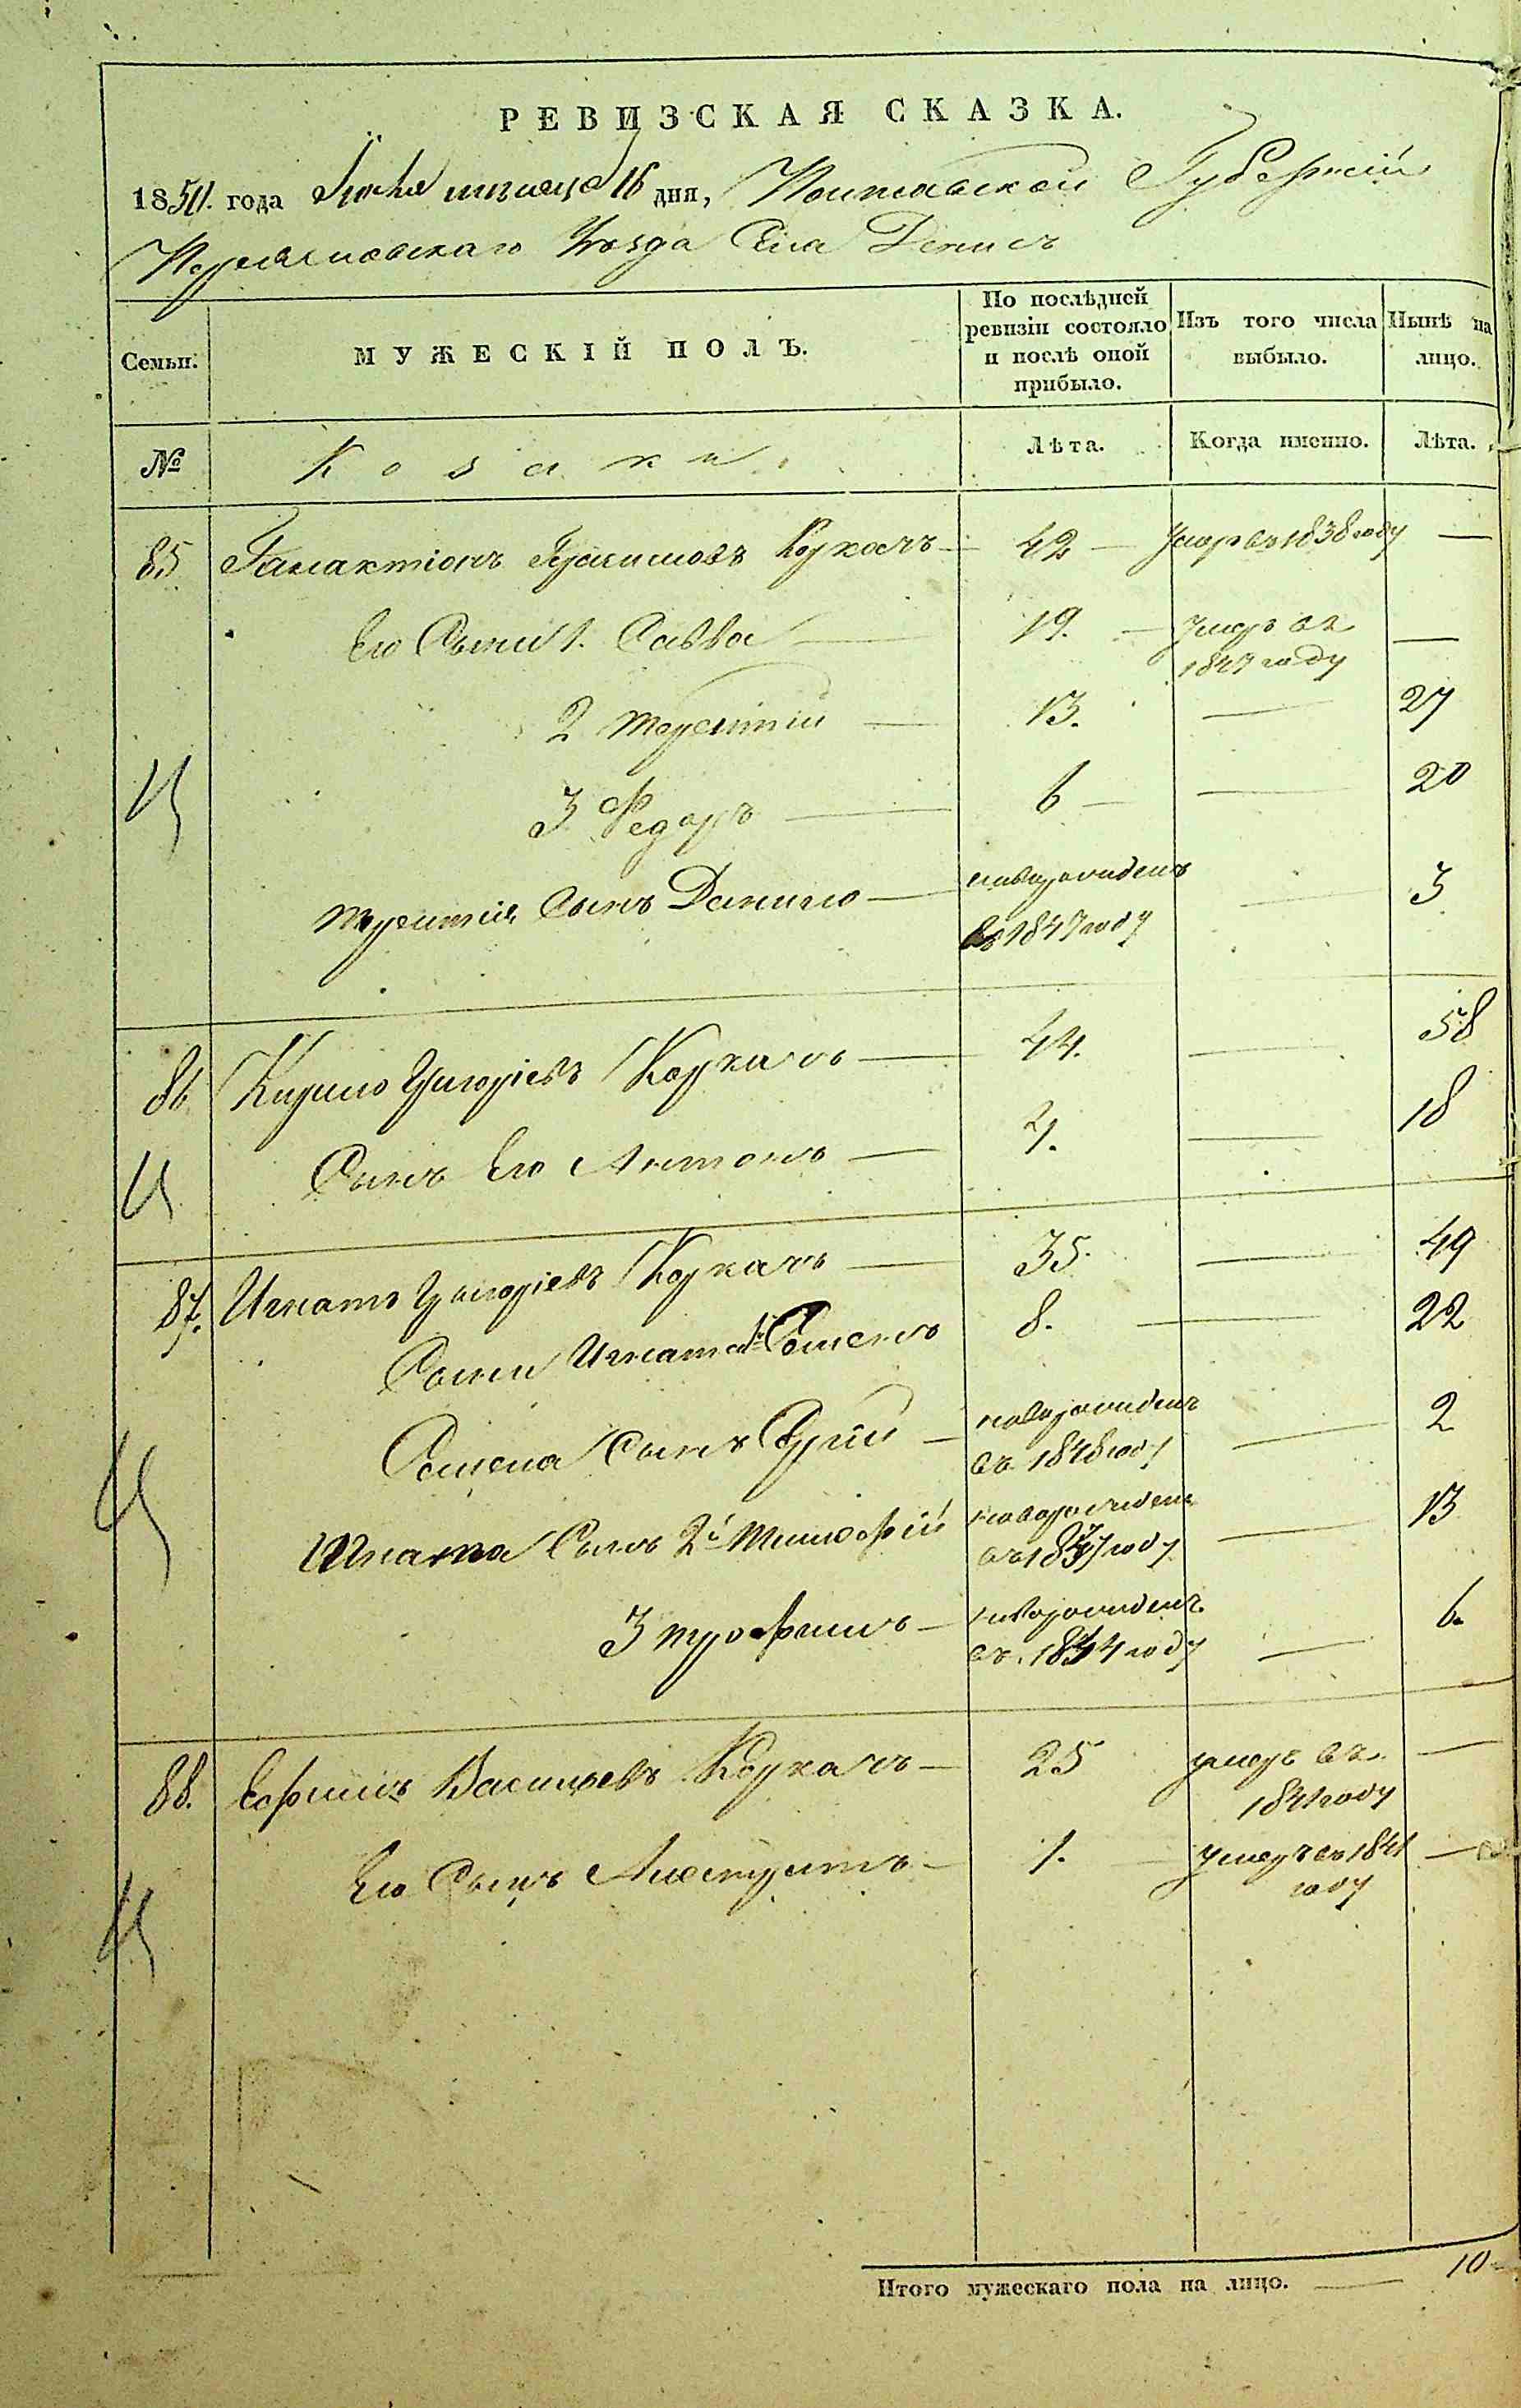 РЕВИЗСКАЯ СКАЗКА.
1850. года Июня месяца 16 дня, Полтавской Губерніи
Переяславскаго Уезда Села Денис
Семьи. МУЖЕСКІЙ ПОЛЪ. По послѣдней ревизіи состояло и послѣ оной прибыло. Изъ того числа выбыло. Нынѣ на лицо.
№ Козаки. Лѣта. Когда именно. Лѣта.
85 Галактіонъ Герасимовъ Коркачъ — 42 — Умеръ въ 1838 году —
Его Сыни 1. Савва — 19. — Умеръ въ 1847 году —
2 Терентій — 13. — 27
3 Федоръ — 6 — — 20
Терентія Сынъ Данило — новорожденъ въ 1847 году — 3
86 Кирило Григоріевъ Коркачъ — 44. — 58
Сынъ Его Антонъ — 4. — 18
87. Игнатъ Григоріевъ Коркачъ — 35. — 49
Сыни Игната 1й Семенъ 8. — 22
Семена Сынъ — новорожденъ въ 1848 году — 2
Игната Сынъ 2й Тимофей новорожденъ въ 1837 году — 13
3 Трофимъ — новорожденъ въ 1844 году — 6.
88. Ефимъ Васильевъ Коркачъ — 25 умеръ въ 1841 году —
Его Сынъ — 1. — умеръ въ 1841 году —
Итого мужескаго пола на лицо. — 10